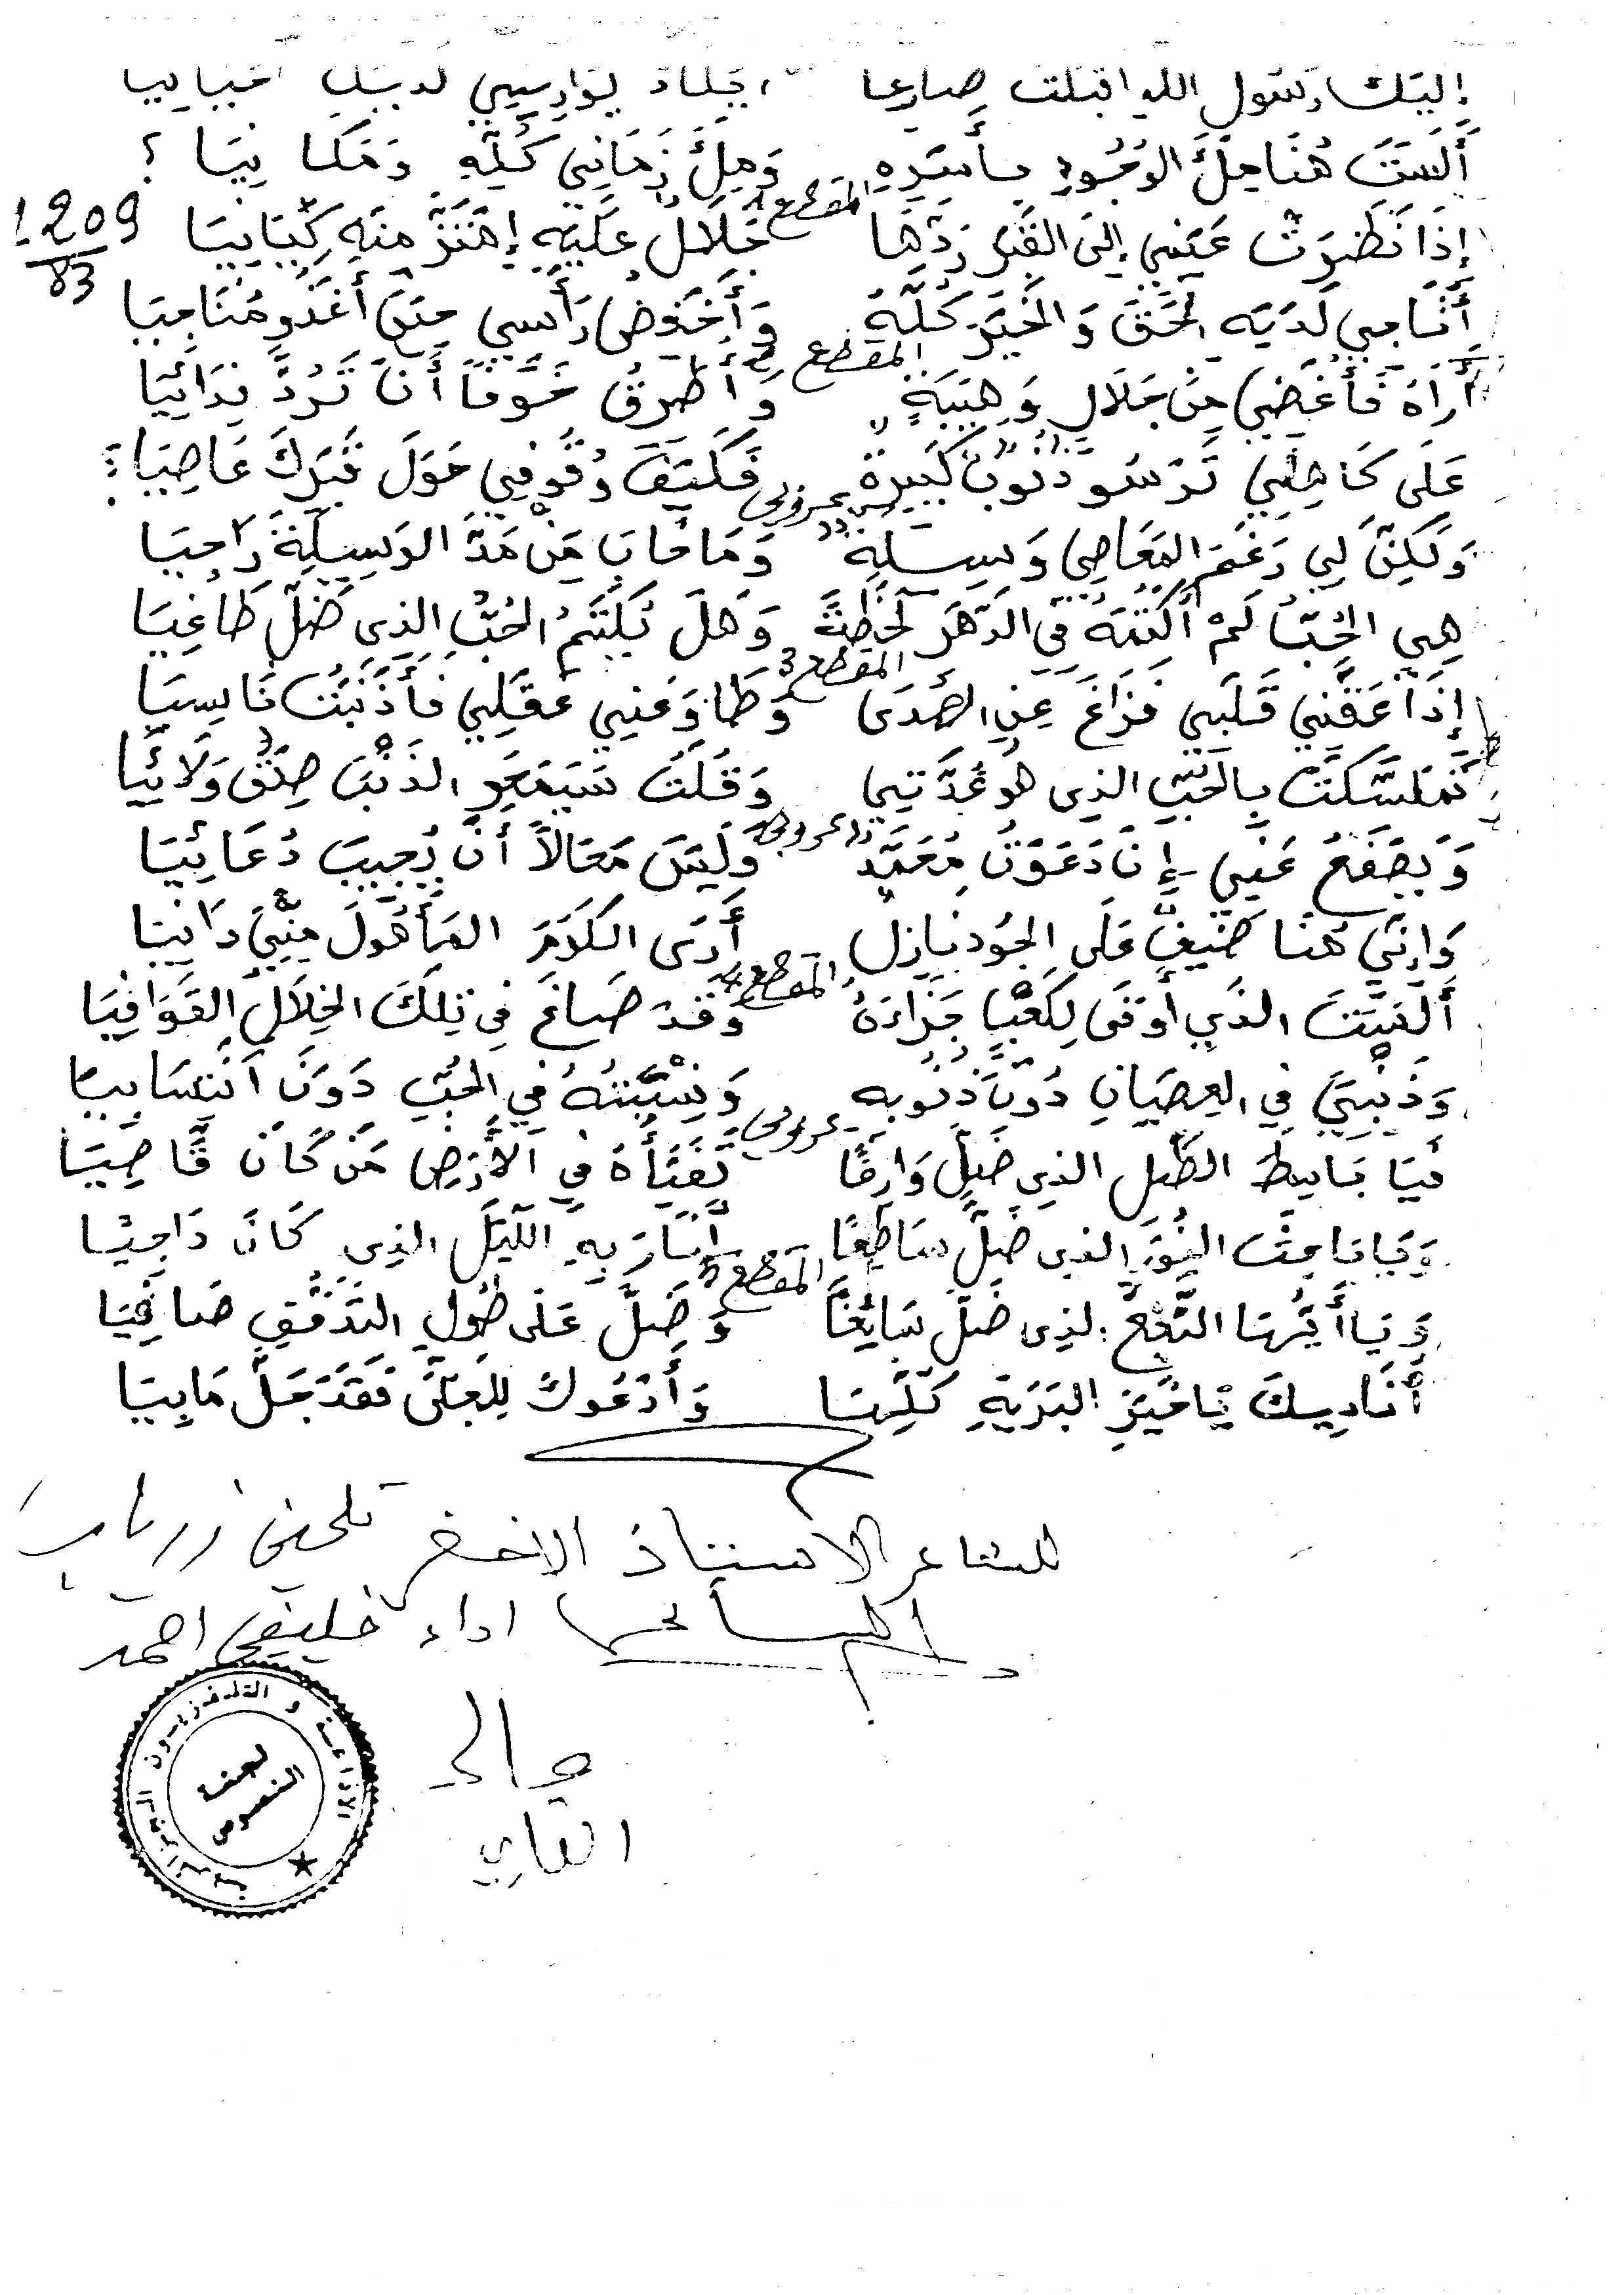 إليك رسول الله أقبلت ضارعا
أَلَسْتَ هُنَا مِلْءَ الوُجُودِ بِأَسْرِهِ وَمِلْءَ زَمَانِي كُلِّهِ وَمَكَانِيَا ؟
المقطع 1
إِذَا نَظَرَتْ عَيْنِي إِلَى القَبْرِ رَدَّهَا جَلَالٌ عَلَيْهِ إِهْتَزَّ مِنْهِ كِيَانِيَا
1209
83
أُنَاجِي لَدَيْهِ الحَقَّ وَالخَيْرَ كُلَّهُ وَأَخْفِضُ رَأْسِي حِينَ أَغْدُو مُنَاجِيَا
المقطع 2
أَرَاهُ فَأُغْضِي مِنْ جَلَالٍ وَهَيْبَةٍ وَأُطْرِقُ خَوْفاً أَنْ تَرُدَّ نِدَائِيَا
عَلَى كَاهِلِي تَرْسُو ذُنُوبٌ كَبِيرَةٌ فَكَيْفَ وُقُوفِي حَوْلَ قَبْرِكَ عَاصِيَا
وَلَكِنَّ لِي رَغْمَ المَعَاصِي وَسِيلَة وَمَا خَابَ مَنْ مَدَّ الوَسِيلَةَ رَاجِيَا
هِيَ الحُبُّ لَمْ أَكْتُمْهُ فِي الدَّهْرِ لَحْظَةً وَهَلْ يُكْتَمُ الحُبُّ الذِي ضَلَّ طَاغِيَا
المقطع 3
إِذَا عَقَّنِي قَلْبِي فَزَاغَ عَنِ الهُدَى وَطَاوَعَنِي عَقْلِي فَأَذْنَبْتُ نَاسِيَا
تَمَسَّكْتُ بِالحُبِّ الذِي هُوَ عُدَّتِي وَقُلْتُ سَيَمْحُو الذَّنْبَ صِدْقُ وَلَائِيَا
وَيَصْفَحُ عَنِّي إِنْ دَعَوْتُ مُحَمَّد وَلَيْسَ مَحَالاً أَنْ يُجِيبَ دُعَائِيَا
وَإِنِّي هُنَا ضَيْفٌ عَلَى الجُودِ نَازِلٌ أَرَى الكَرَمَ المَأْمُولَ مِنِّيَ دَانِيَا
المقطع 4
أَلَسْتَ الذِي أَوْفَى لِكَعْبٍ جَزَاءَهُ وَقَدْ صَاغَ فِي تِلْكَ الخِلَالِ القَوَافِيَا
وَذَنْبِيَ فِي العِصْيَانِ دُونَ ذُنُوبِهِ وَنِسْبَتُهُ فِي الحُبِّ دُونَ انْتِسَابِيَا
فَيَا بَاسِطَ الظِّلِّ الذِي ضَلَّ وَارِفًا تَفَيَّأَهُ فِي الأَرْضِ مَنْ كَانَ قَاصِيَا
وَيَا بَاعِثَ النُّورِ الذي ضَلَّ سَاطِعًا أَنَارَ بِهِ اللَّيْلَ الذِي كَانَ دَاجِيَا
المقطع 5
وَيَا أَيُّهَا النَّبْعُ الذِي ضَلَّ سَائِغًا وَضَلَّ عَلَى طُولِ التَدَفُّقِ صَافِيَا
أُنَادِيكَ يَا خَيْرَ البَرِيَّةِ كُلِّهَا وَأَدْعُوكَ لِلجُلَّى فَقَدْ جَلَّ مَابِيَا
للشاعر الاستاذ الاخضر السائحي تلحين زرياب
اداء خليفي احمد
الاذاعة و التلفزيون الجزائرية
لجنة
النصوص